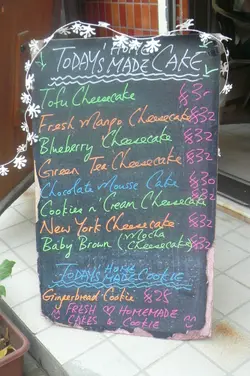 Home
TODAY'S MADE CAKE
Tofu Cheesecake $30
Fresh Mango Cheesecake $32
Blueberry Cheesecake $32
Green Tea Cheesecake $32
Chocolate Mouse Cake $30
Cookies n' Cream Cheesecake $32
New York Cheesecake $32
Baby Brown (Mocha Cheesecake) $32
Home
TODAY'S MADE COOKIE
Gingerbread Cookie $28
FRESH ♡ HOMEMADE
CAKES & COOKIE